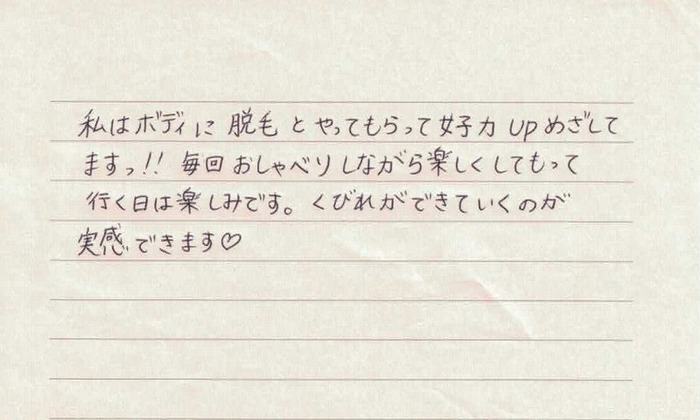 私はボディに脱毛とやってもらって女子力upめざして
ますっ!! 毎回おしゃべりしながら楽しくしてもって
行く日は楽しみです。くびれができていくのが
実感できます♡